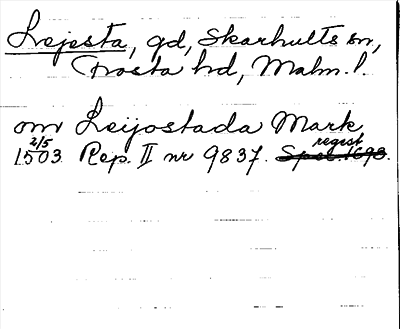 Lejesta, gd, Skarhults sn,
Frosta hd, Malm. l.
om Leijostada Mark
2/5 regist
1503. Rep. II nr 9837. Spol. 1693.